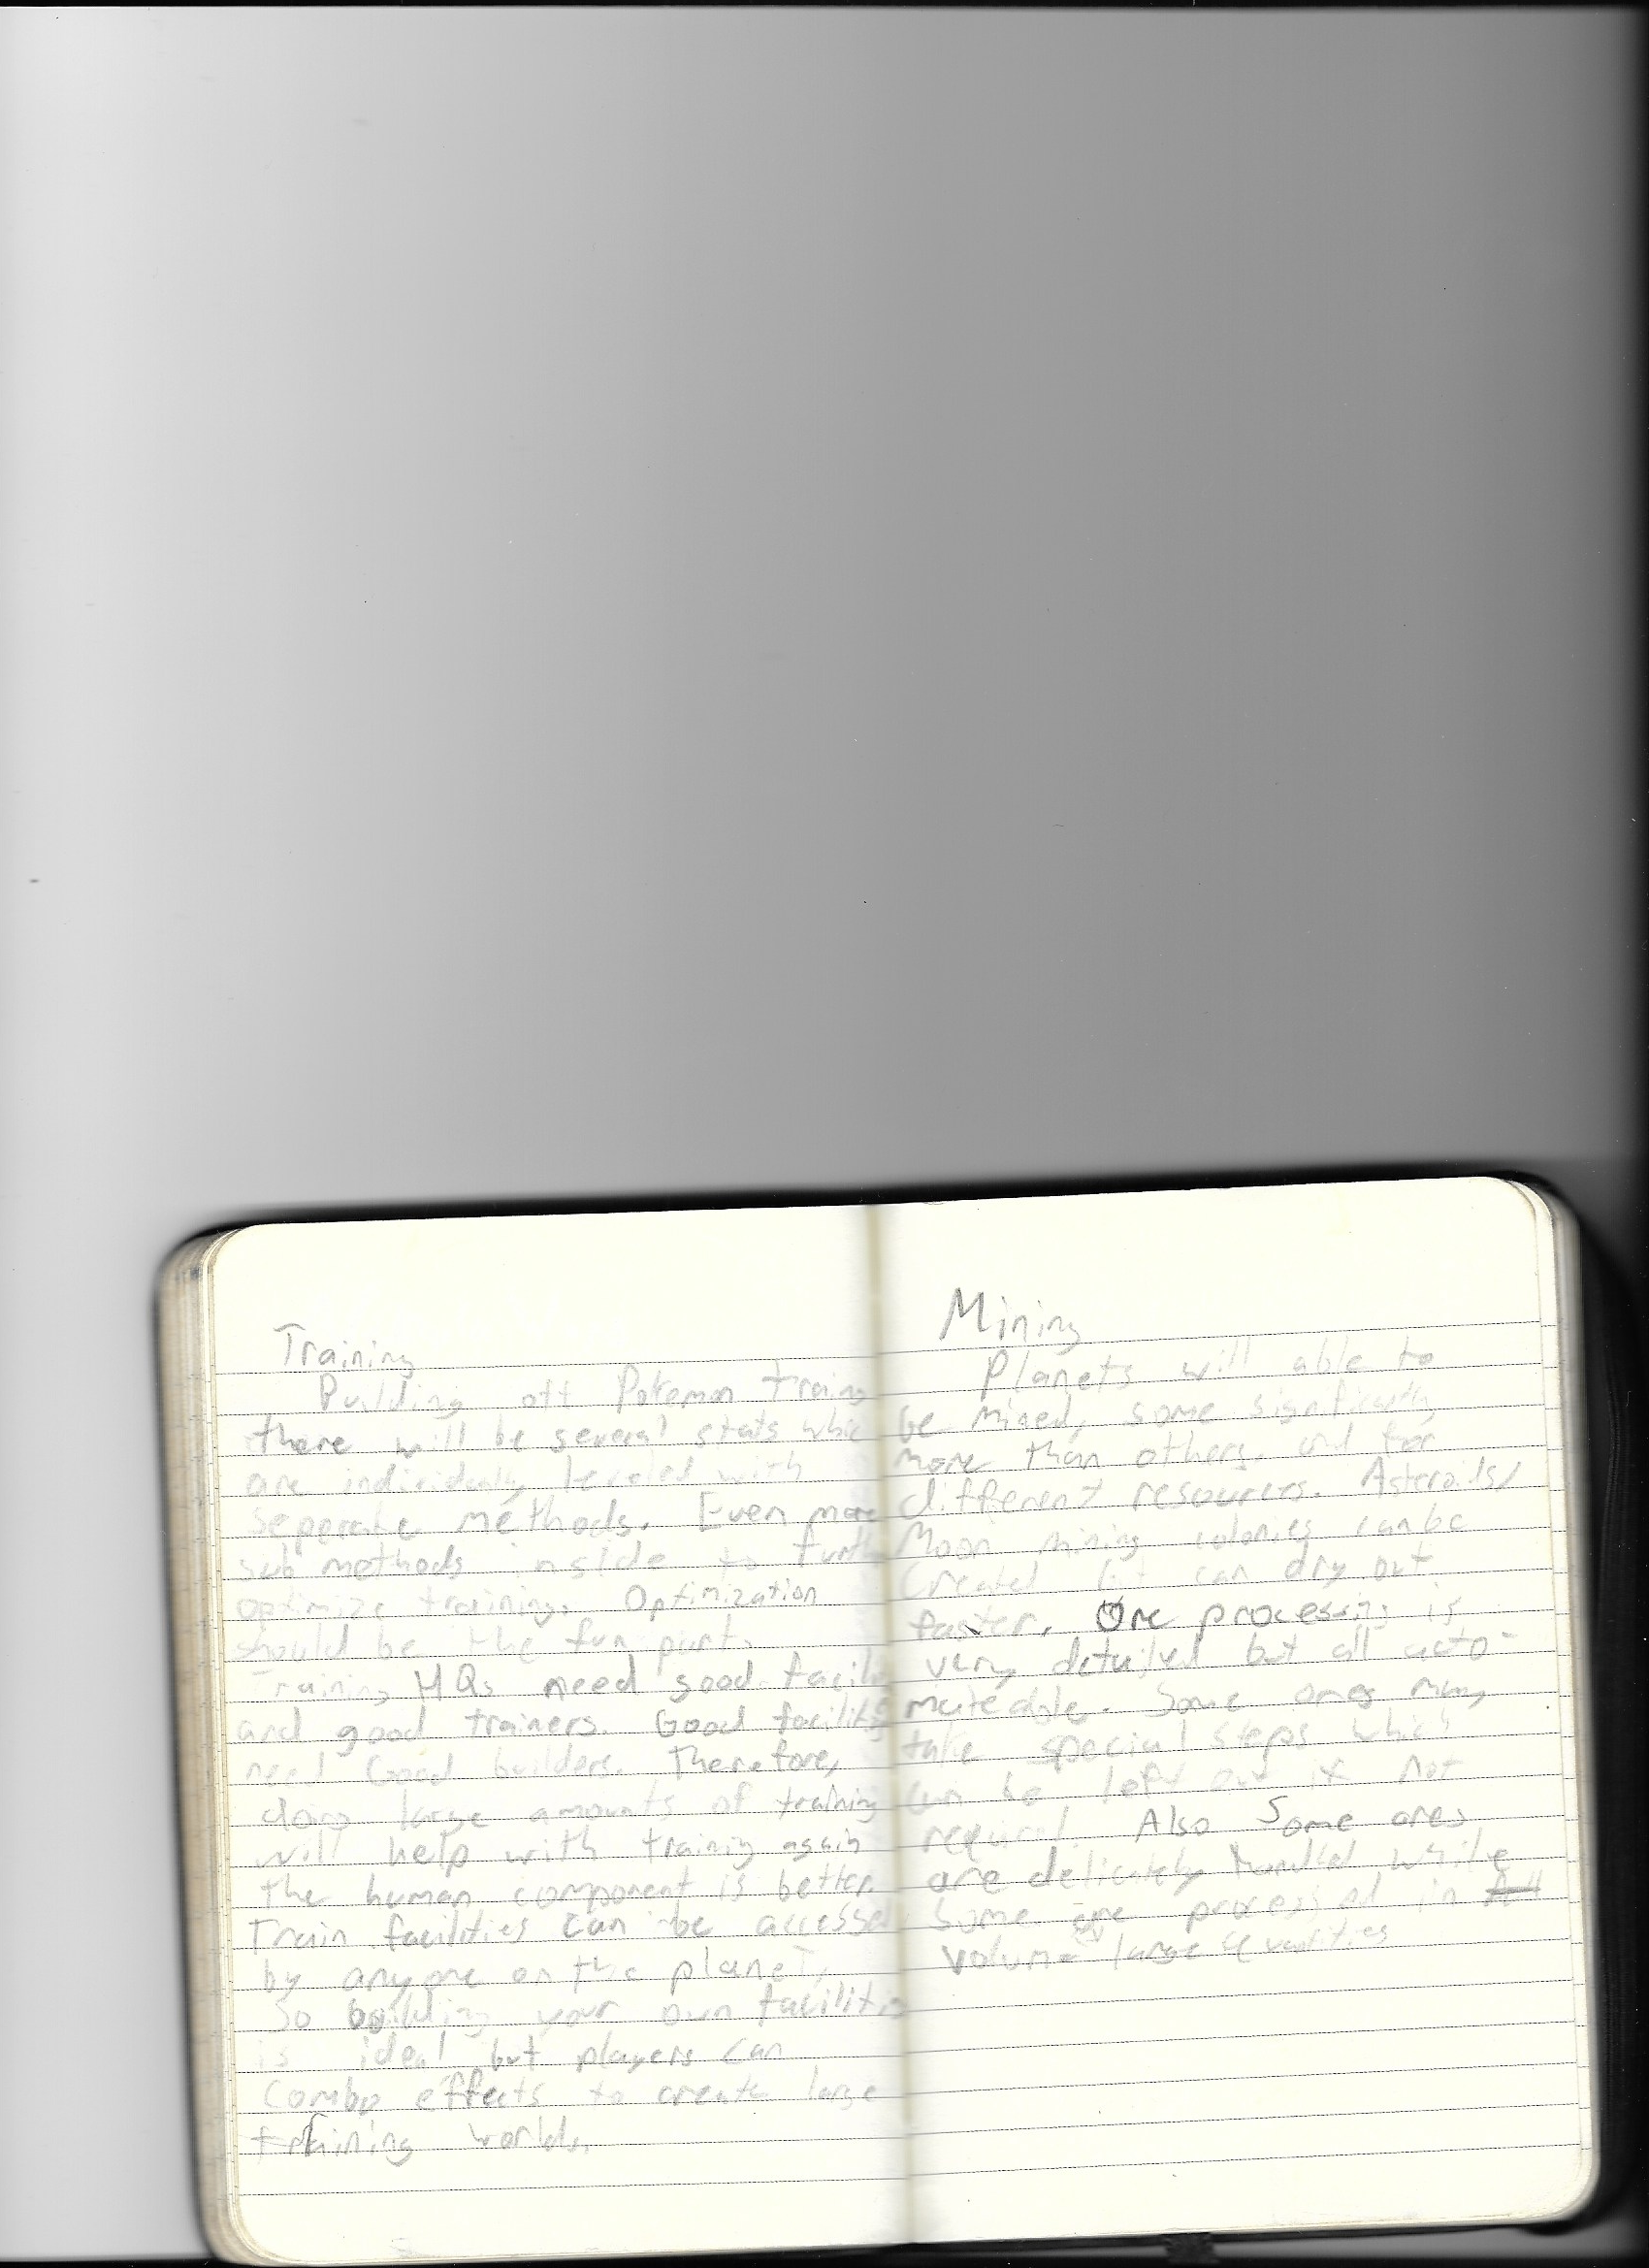 Training
Building off Pokemon Training
there will be several stats which
are individually leveled with
seperate methods. Even more
sub methods inside to further
optimize training. Optimization
should be the fun part.
Training HQs need good facili
and good trainers. Good facilities
need Good builders. Therefore,
doing large amounts of training
will help with training again
the human component is better.
Train facilities can be accessed
by anyone on the planet,
So building your own facilities
is ideal but players can
Combo effects to create large
training worlds.
Mining
Planets will able to
be mined, some significantly
more than others. and for
different resources. Asteroids/
Moon mining colonies can be
Created but can dry out
faster. Ore processing is
very detailed but all auto-
mateable. Some ores may
take special steps which
can be left out if not
required. Also Some ores
are delicately handled while
Some are processed in
volume large quantities